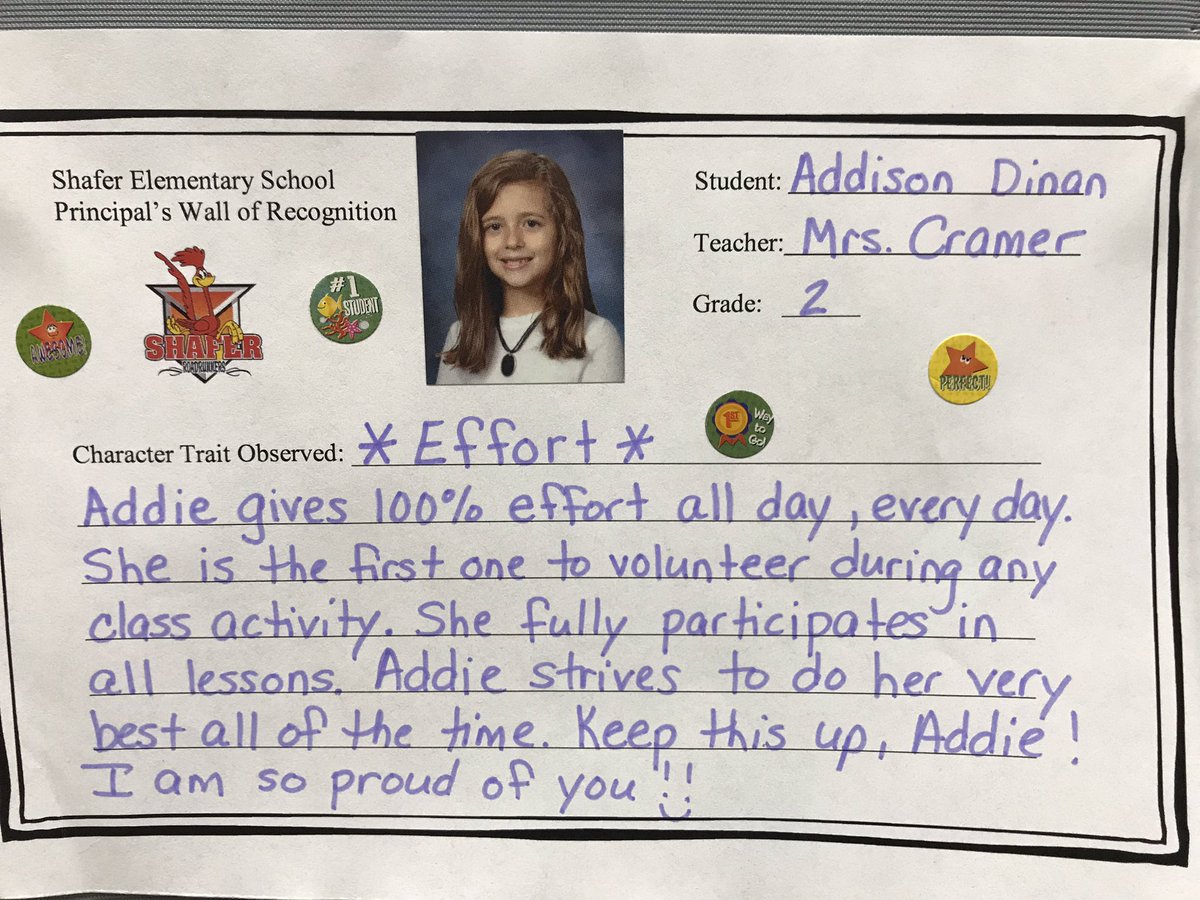 Shafer Elementary School
Principal's Wall of Recognition
Student: Addison Dinan
Teacher: Mrs. Cramer
Grade: 2
AWESOME!
SHAFER
ROADRUNNERS
#1
STUDENT
PERFECT!
1ST
Way
to
Go!
Character Trait Observed: * Effort *
Addie gives 100% effort all day, every day.
She is the first one to volunteer during any
class activity. She fully participates in
all lessons. Addie strives to do her very
best all of the time. Keep this up, Addie!
I am so proud of you!!